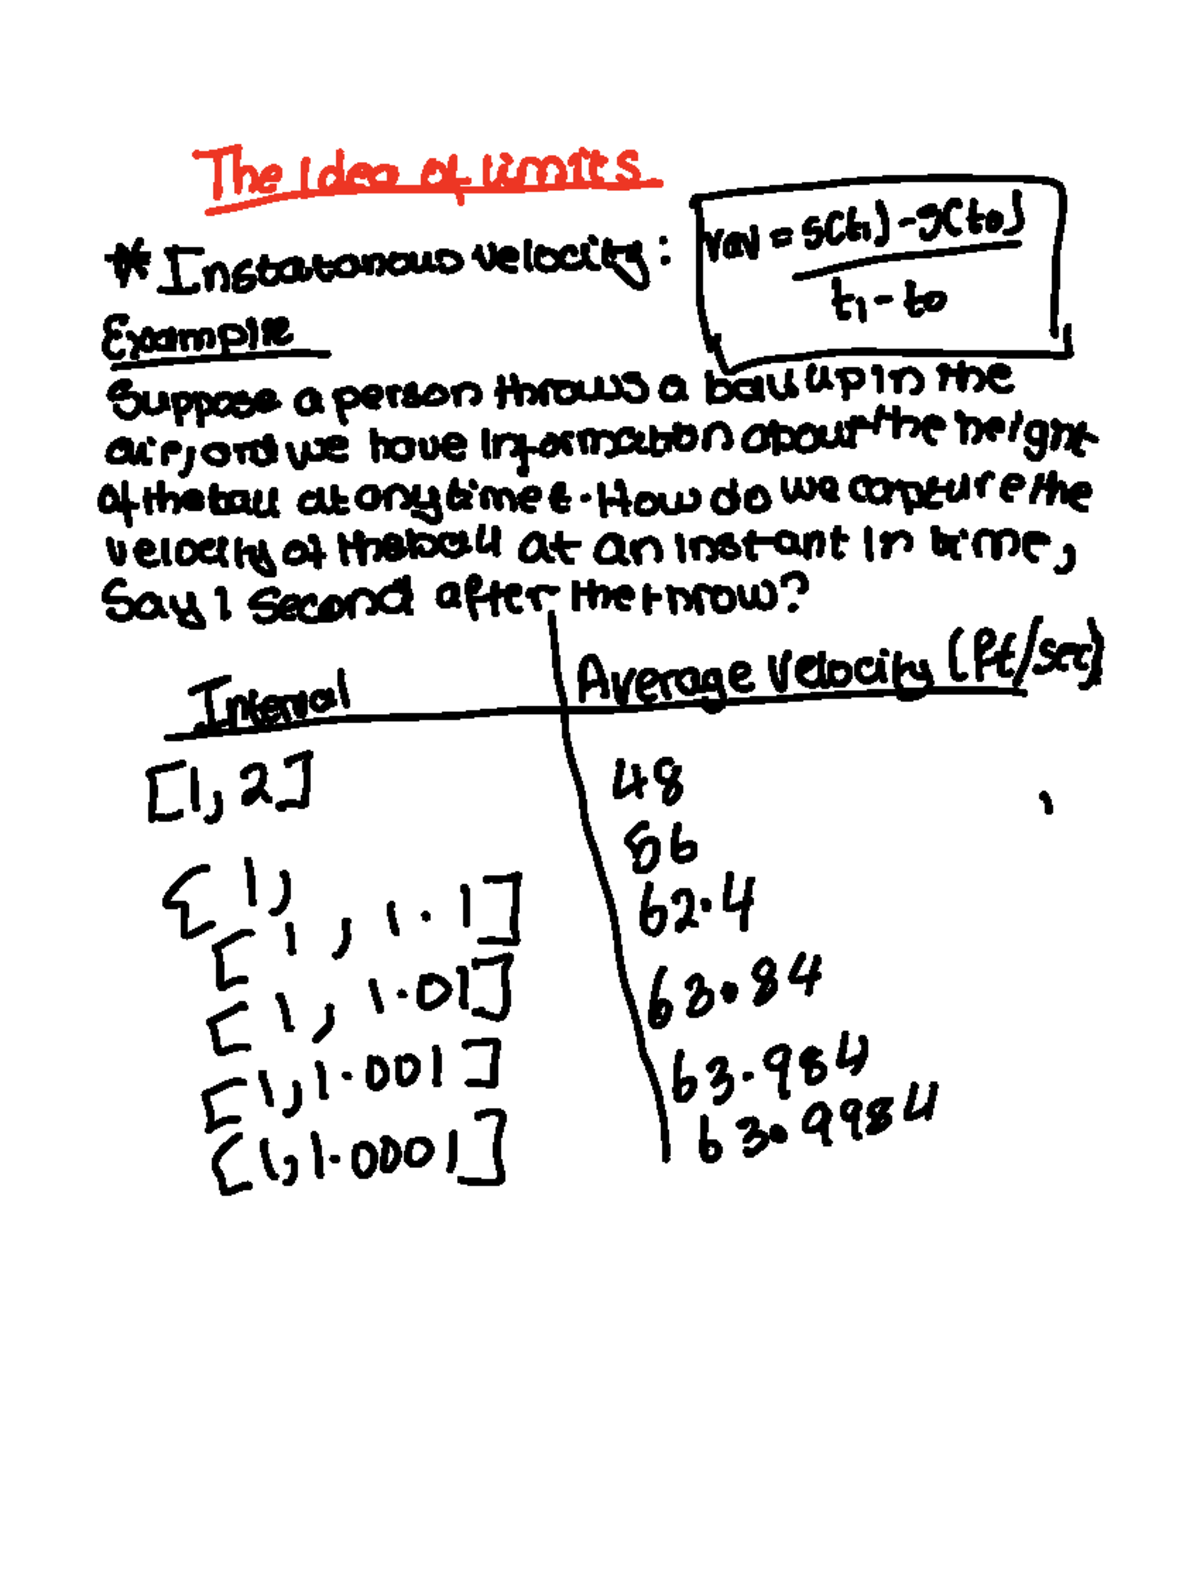 The Idea of limits
* Instatanous velocity:
vav = s(t₁) - s(t₀)
t₁ - t₀
Example
Suppose a person throws a ball up in the
air, and we have information about the height
of the ball at any time t. How do we capture the
velocity of the ball at an instant in time,
Say 1 second after the throw?
Interval Average Velocity (ft/sec)
[1, 2] 48
[1, 56
[1, 1.1] 62.4
[1, 1.01] 63.84
[1, 1.001] 63.984
[1, 1.0001] 63.9984